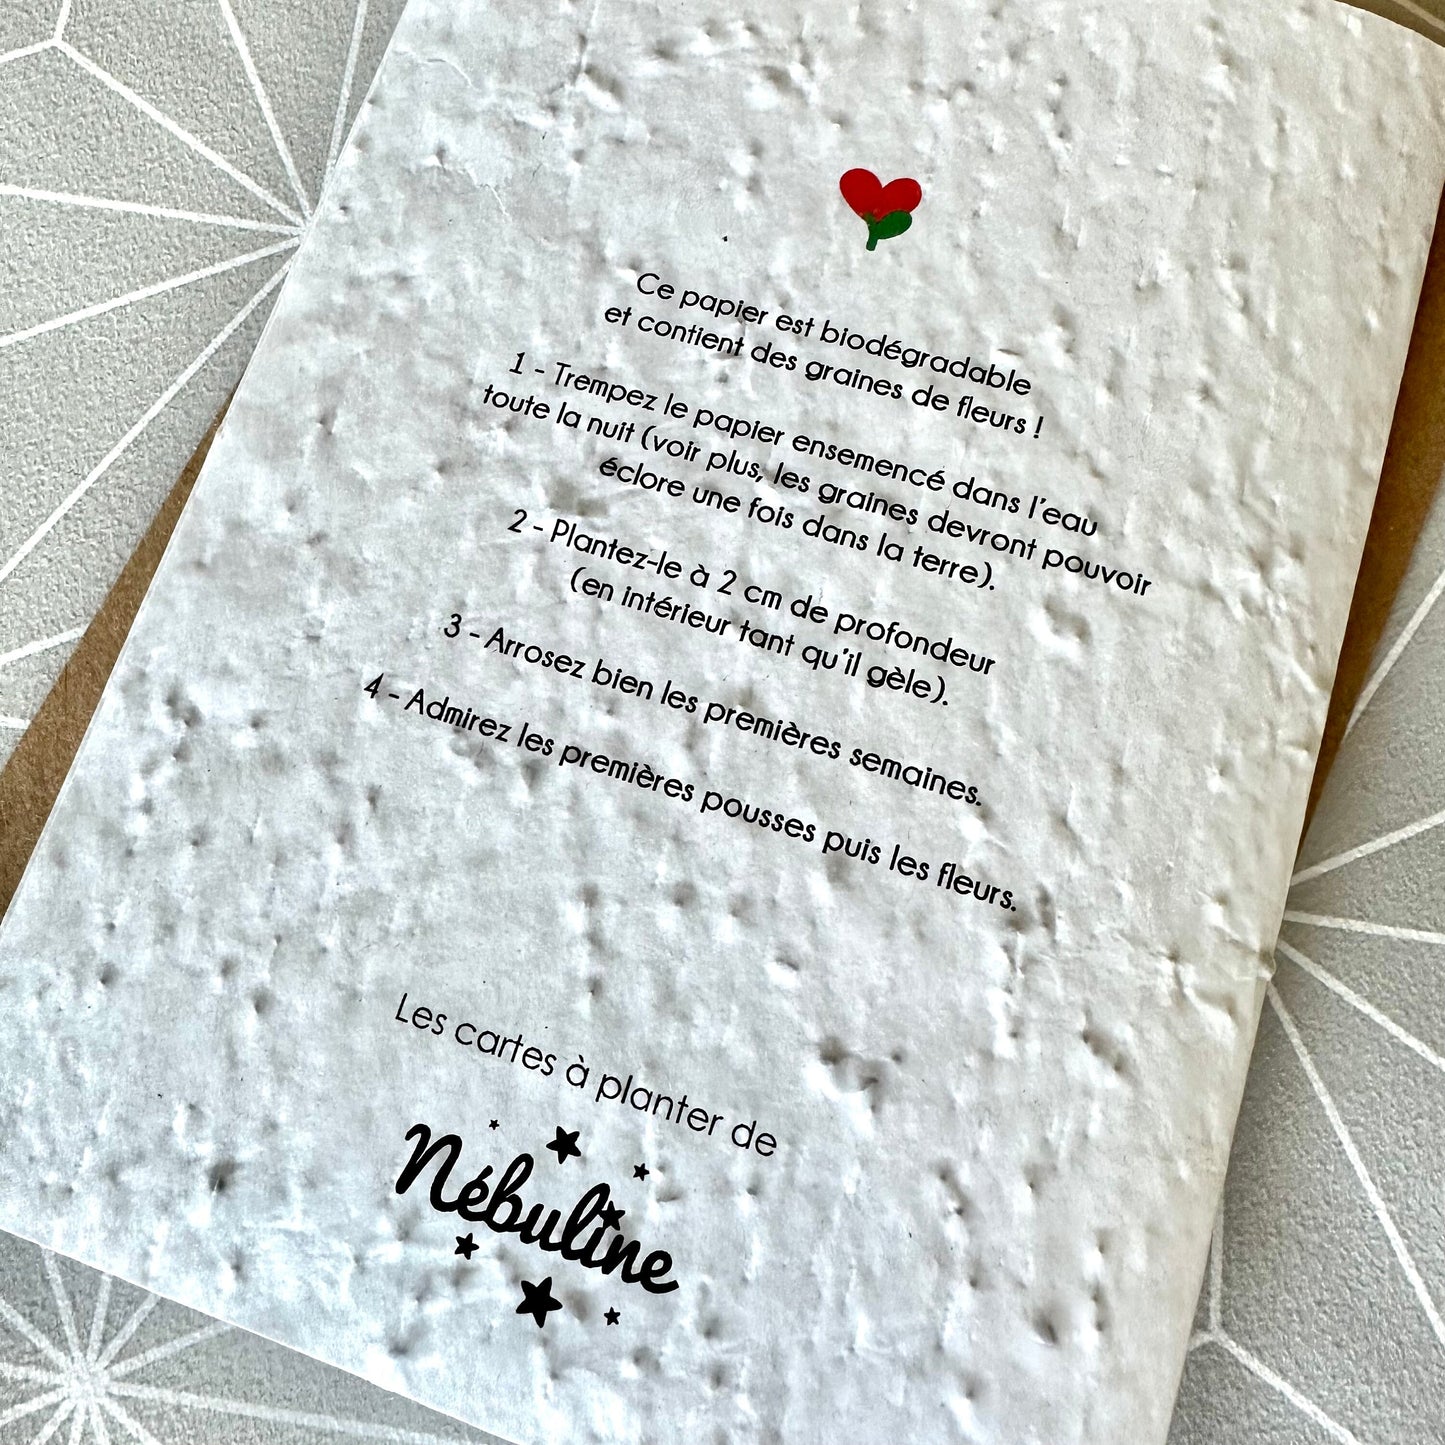 Ce papier est biodégradable
et contient des graines de fleurs !
1 - Trempez le papier ensemencé dans l'eau
toute la nuit (voir plus, les graines devront pouvoir
éclore une fois dans la terre).
2 - Plantez-le à 2 cm de profondeur
(en intérieur tant qu'il gèle).
3 - Arrosez bien les premières semaines.
4 - Admirez les premières pousses puis les fleurs.
Les cartes à planter de
Nébuline